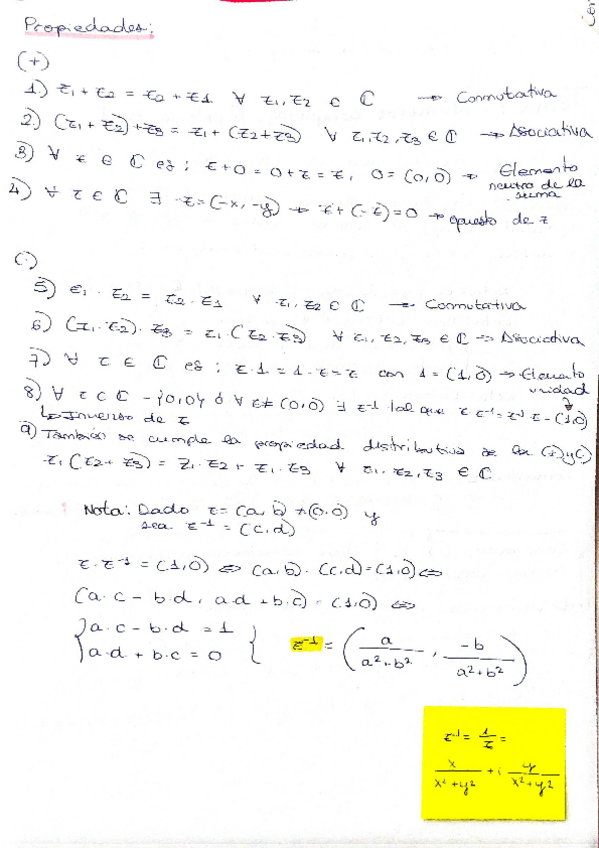 Propiedades:
(+)
1) z₁ + z₂ = z₂ + z₁ ∀ z₁, z₂ ∈ ℂ → Conmutativa
2) (z₁ + z₂) + z₃ = z₁ + (z₂ + z₃) ∀ z₁, z₂, z₃ ∈ ℂ → Asociativa
3) ∀ z ∈ ℂ es: z + 0 = 0 + z = z, 0 = (0,0) → Elemento
neutro de la
suma
4) ∀ z ∈ ℂ ∃ -z = (-x, -y) → z + (-z) = 0 → opuesto de z
(·)
5) z₁ · z₂ = z₂ · z₁ ∀ z₁, z₂ ∈ ℂ → Conmutativa
6) (z₁ · z₂) · z₃ = z₁ · (z₂ · z₃) ∀ z₁, z₂, z₃ ∈ ℂ → Asociativa
7) ∀ z ∈ ℂ es: z · 1 = 1 · z = z con 1 = (1,0) → Elemento
unidad
8) ∀ z ∈ ℂ - {0,0} ó ∀ z ≠ (0,0) ∃ z⁻¹ tal que z z⁻¹ = z⁻¹ z = (1,0)
↳ Inverso de z
9) También se cumple la propiedad distributiva de la (+) y (·)
z₁ (z₂ + z₃) = z₁ · z₂ + z₁ · z₃ ∀ z₁, z₂, z₃ ∈ ℂ
Nota: Dado z = (a, b) ≠ (0,0) y
sea z⁻¹ = (c, d)
z · z⁻¹ = (1,0) ⇔ (a, b) · (c, d) = (1,0) ⇔
(a · c - b · d, a · d + b · c) = (1,0) ⇔
{ a · c - b · d = 1
{ a · d + b · c = 0 } z⁻¹ = ( a / a² + b² , -b / a² + b² )
z⁻¹ = 1/z =
x / x² + y² + i y / x² + y²